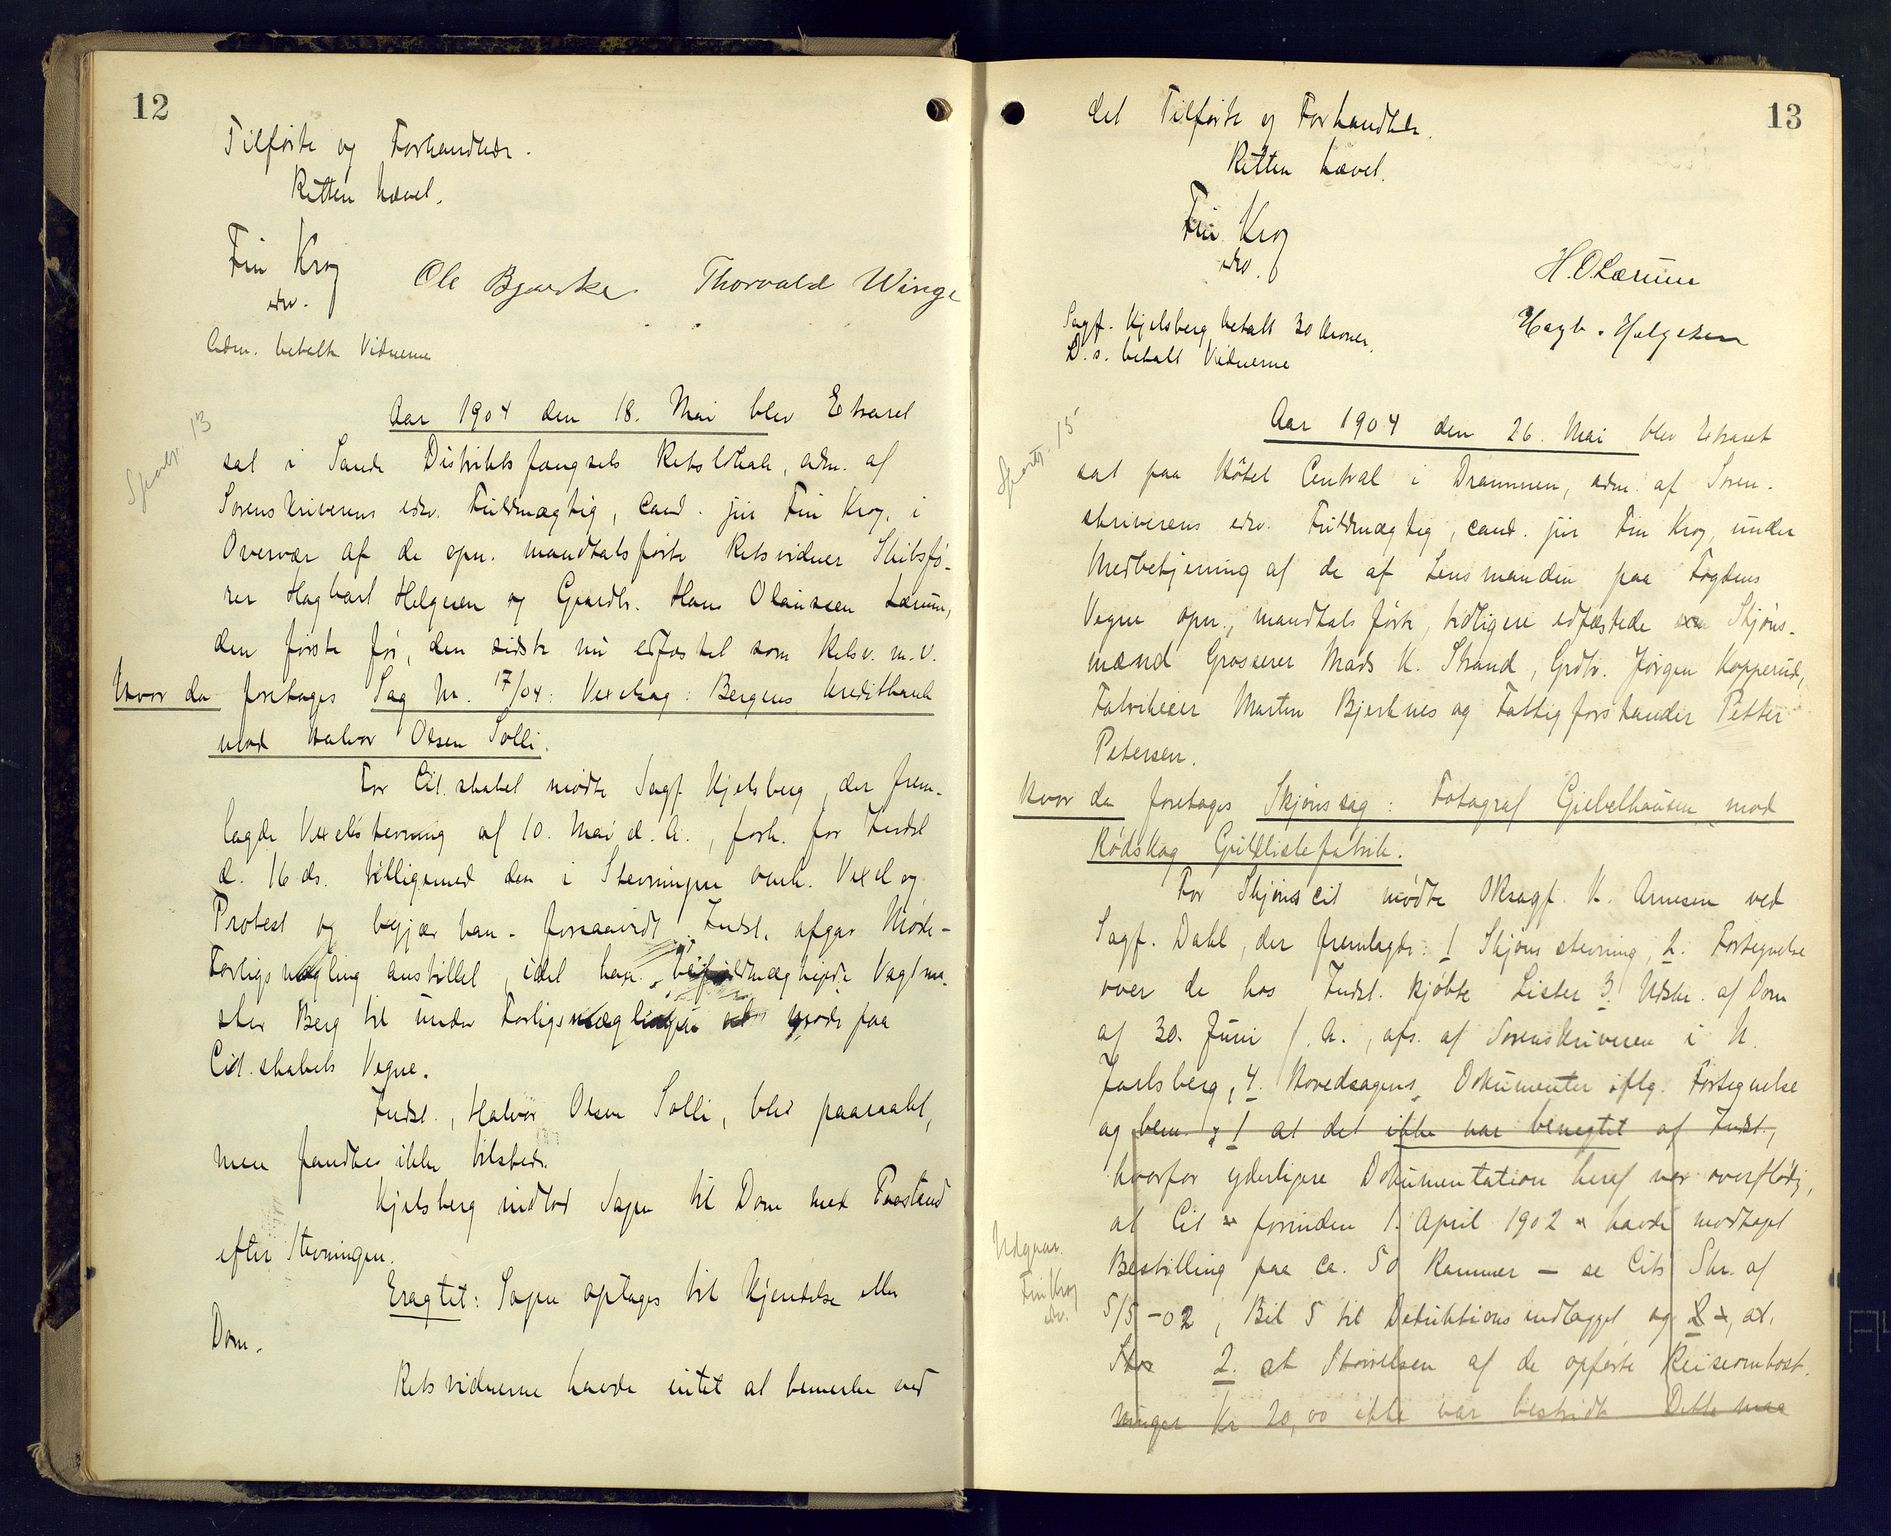 12
Tilførte og Forhandlede.
Retten hævet.
Fin Krog
edsv.
Ole Bjerke. Thorvald Winge
Adm. betalte Vidnerne
Sportr. 13
Aar 1904 den 18. Mai blev Extraret
sat i Sande Distriktsfængsels Retslokale, adm. af
Sorenskriverens edsv. Fuldmægtig, cand. jur Fin Krog, i
Overvær af de opn. mandtalsførte Retsvidner Skibsfø-
rer Hagbart Helgesen og Gaardbr. Hans Olaussen Lærum,
den første før, den sidste nu edfæstet som Retsv. m. v.
Hvor da foretages Sag Nr. 17/04: Vexelsag: Bergens Kreditbank
mod Halvor Olsen Solli.
For Cit.skabet mødte Sagf Kjelsberg, der frem-
lagde Vexelstevning af 10. Mai d. A., fork. for Indst
d. 16 ds. tilligemed den i Stevningen omh. Vexel og
Protest og begjær han - forsaavidt Indst. afgav Møde -
Forligsmægling anstillet, idet han befuldmægtigede Vagtme-
ster Berg til under Forligsmæglingen at møde paa
Cit.skabets Vegne.
Indst., Halvor Olsen Solli, blev paaraabt,
men fandtes ikke tilstede.
Kjelsberg indlod Sagen til Dom med Paastand
efter Stevningen.
Eragtet: Sagen optages til Kjendelse eller
Dom.
Retsvidnerne havde intet at bemerke ved
13
det Tilførte og Forhandlede.
Retten hævet.
Fin Krog
edsv.
H. O Lærum
Hagb. Helgesen
Sagf. Kjelsberg betalt 30 Kroner.
D. s. betalt Vidnerne
Sportr. 15
Aar 1904 den 26. Mai blev Extraret
sat paa Hôtel Central i Drammen, adm. af Soren-
skriverens edsv. Fuldmægtig, cand. jur Fin Krog, under
Medbetjening af de af Lensmanden paa Fogdens
Vegne opn., mandtalsførte, tidligere edfæstede Skjøns-
mænd Grosserer Mads K. Strand, Grdbr. Jørgen Kopperud,
Fabrikeier Morten Bjerknes og Fattigforstander Petter
Petersen.
Hvor da foretages Skjønssag: Fotograf Giebelhausen mod
Rødskog Guldlistefabrik.
For Skjønscit mødte ORsagf. K. Arnesen ved
Sagf. Dahl, der fremlagde: 1 Skjønsstevning, 2. Fortegnelse
over de hos Indst. kjøbte Lister 3. Udskr. af Dom
af 30. Juni f. A., afs. af Sorenskriveren i N.
Jarlsberg, 4. Hovedsagens Dokumenter iflg. Fortegnelse
og bem. 1 at det ikke var benegtet af Indst.,
hvorfor yderligere Dokumentation heraf var overflødig,
at Cit forinden 1. April 1902 havde modtaget
Bestilling paa ca. 50 Rammer - se Cits Skr. af
5/5 -02, Bil 5 til Deduktionsindlægget og 2, at.
2. at Størrelsen af de opførte Reiseomkost-
ninger Kr 20,00 ikke var bestridt Dette maa
Udgaar.
Fin Krog
edsv.